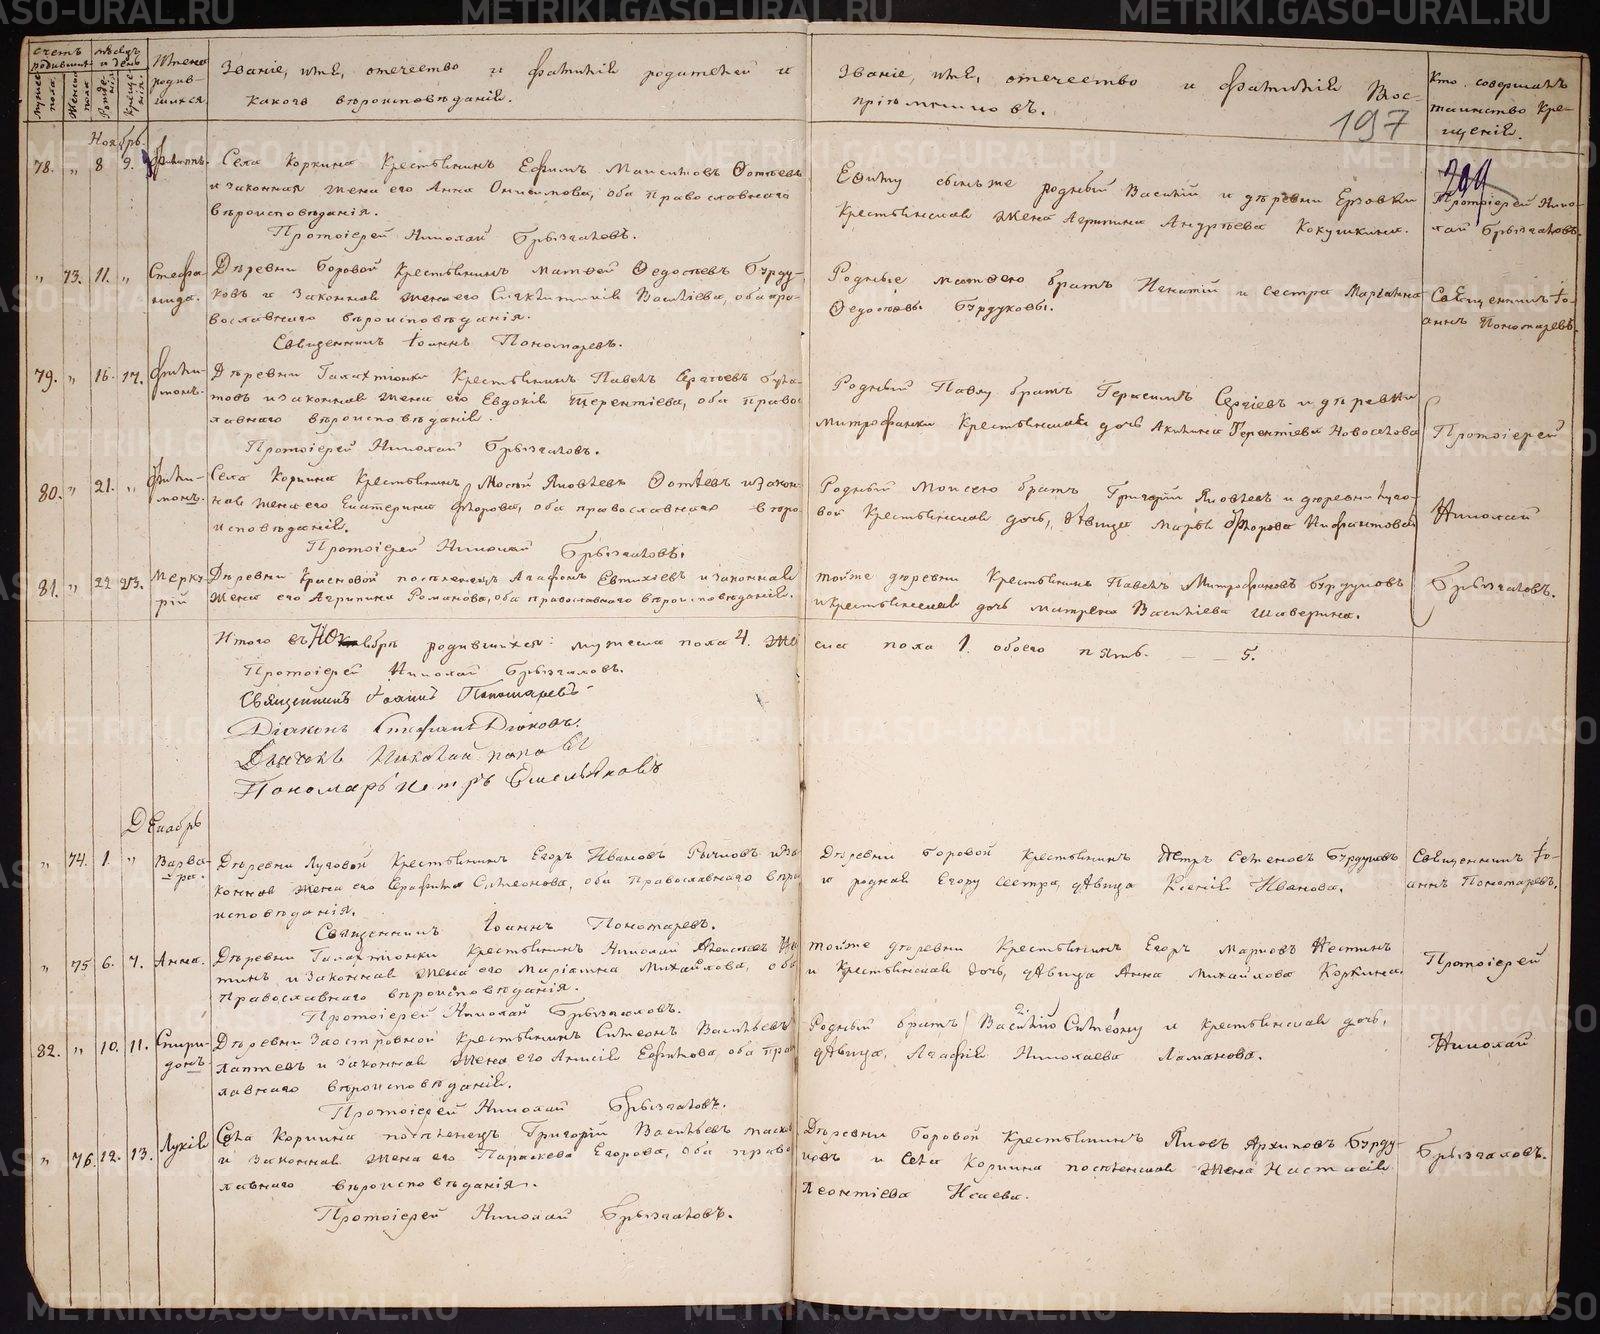 METRIKI.GASO-URAL.RU
Счетъ родившихся
Мѣсяцъ и день
Имена родившихся.
Званіе, имя, отечество и фамилія родителей и
какого вѣроисповѣданія.
Званіе, имя, отечество и фамилія Вос-
пріемниковъ.
Кто совершалъ
таинство Кре-
щенія.
197
Ноябрь
78. " 8 9.
Села Коркина Крестьянинъ Ефимъ
и законная жена его Анна Онисимова, оба православнаго
вѣроисповѣданія.
Протоіерей Николай Брызгаловъ.
родный Василій и деревни Ерзовки
Крестьянская жена Агрипина Андреева Кокушкина.
Протоіерей Нико-
лай Брызгаловъ.
" 73. 11. " Стефа-
нида.
Деревни Боровой Крестьянинъ Матѳей Ѳедосѣевъ Бурду-
ковъ и законная жена его Васильева, оба пра-
вославнаго вѣроисповѣданія.
Священникъ Іоаннъ Пономаревъ.
Родные Матѳею братъ Игнатій и сестра Маріанна
Ѳедосѣевы Бурдуковы.
Священникъ Іо-
аннъ Пономаревъ.
79. " 16. 17. Фили-
монъ.
Деревни Галактіонки Крестьянинъ Павелъ Сергѣевъ
и законная жена его Евдокія Терентіева, оба право-
славнаго вѣроисповѣданія.
Протоіерей Николай Брызгаловъ.
Родный Павлу братъ Герасимъ Сергіевъ и деревни
Митрофанки Крестьянская дочь Акилина Терентіева Новоселова
Протоіерей
80. " 21. " Фили-
монъ.
Села Коркина Крестьянинъ Моѵсей Яковлевъ и закон-
ная жена его Екатерина оба православнаго вѣро
исповѣданія.
Протоіерей Николай Брызгаловъ.
Родный Моисею братъ Григорій Яковлевъ и деревни Луго-
вой Крестьянская дочь, дѣвица Марья
Николай
81. " 22 23. Мерку-
рій
Деревни Красновой поселенецъ Агафонъ Евтихіевъ и законная
жена его Агрипина Романова, оба православнаго вѣроисповѣданія.
тойже деревни Крестьянинъ Павелъ Митрофановъ Бурдуковъ
и крестьянская дочь Матрена Василіева Шаверина.
Брызгаловъ.
Итого въ Ноябрѣ родившихся: мужеска пола 4. Жен
ска пола 1. обоего пять. — — 5.
Протоіерей Николай Брызгаловъ.
Священникъ Іоаннъ Пономаревъ
Діаконъ Стефанъ Дьяковъ.
Дьячекъ Николай Поповъ
Пономарь Петръ Емельяновъ
Декабрь
" 74. 1. " Варва-
ра.
Деревни Луговой Крестьянинъ Егоръ Ивановъ Рычковъ и за-
конная жена его Серафима Симеонова, оба Православнаго вѣро
исповѣданія.
Священникъ Іоаннъ Пономаревъ.
Деревни Боровой Крестьянинъ Петръ Семеновъ Бурдуковъ
и родная Егору сестра, дѣвица Ксенія Иванова.
Священникъ Іо-
аннъ Пономаревъ.
" 75 6. 7. Анна.
Деревни Галактіонки Крестьянинъ Николай Алексѣевъ
и законная жена его Маріанна Михайлова, оба
Православнаго вѣроисповѣданія.
Протоіерей Николай Брызгаловъ.
тойже деревни Крестьянинъ Егоръ Марковъ
и Крестьянская дочь, дѣвица Анна Михайлова Коркина.
Протоіерей
82. " 10. 11. Спири-
донъ
Деревни Заостровной Крестьянинъ Симеонъ Васильевъ
Лаптевъ и законная жена его Анисія Ефимова, оба пра
славнаго вѣроисповѣданія.
Протоіерей Николай Брызгаловъ.
Родный братъ Василій Симеону и крестьянская дочь,
дѣвица, Агафія Николаева Ламанова.
Николай
" 76. 12. 13. Лукія
Села Коркина поселенецъ Григорій Васильевъ
и законная жена его Параскева Егорова, оба право
славнаго вѣроисповѣданія.
Протоіерей Николай Брызгаловъ.
Деревни Боровой Крестьянинъ Яковъ Архиповъ Бурду-
ковъ и Села Коркина поселенская жена Настасія
Леонтіева Исаева.
Брызгаловъ.